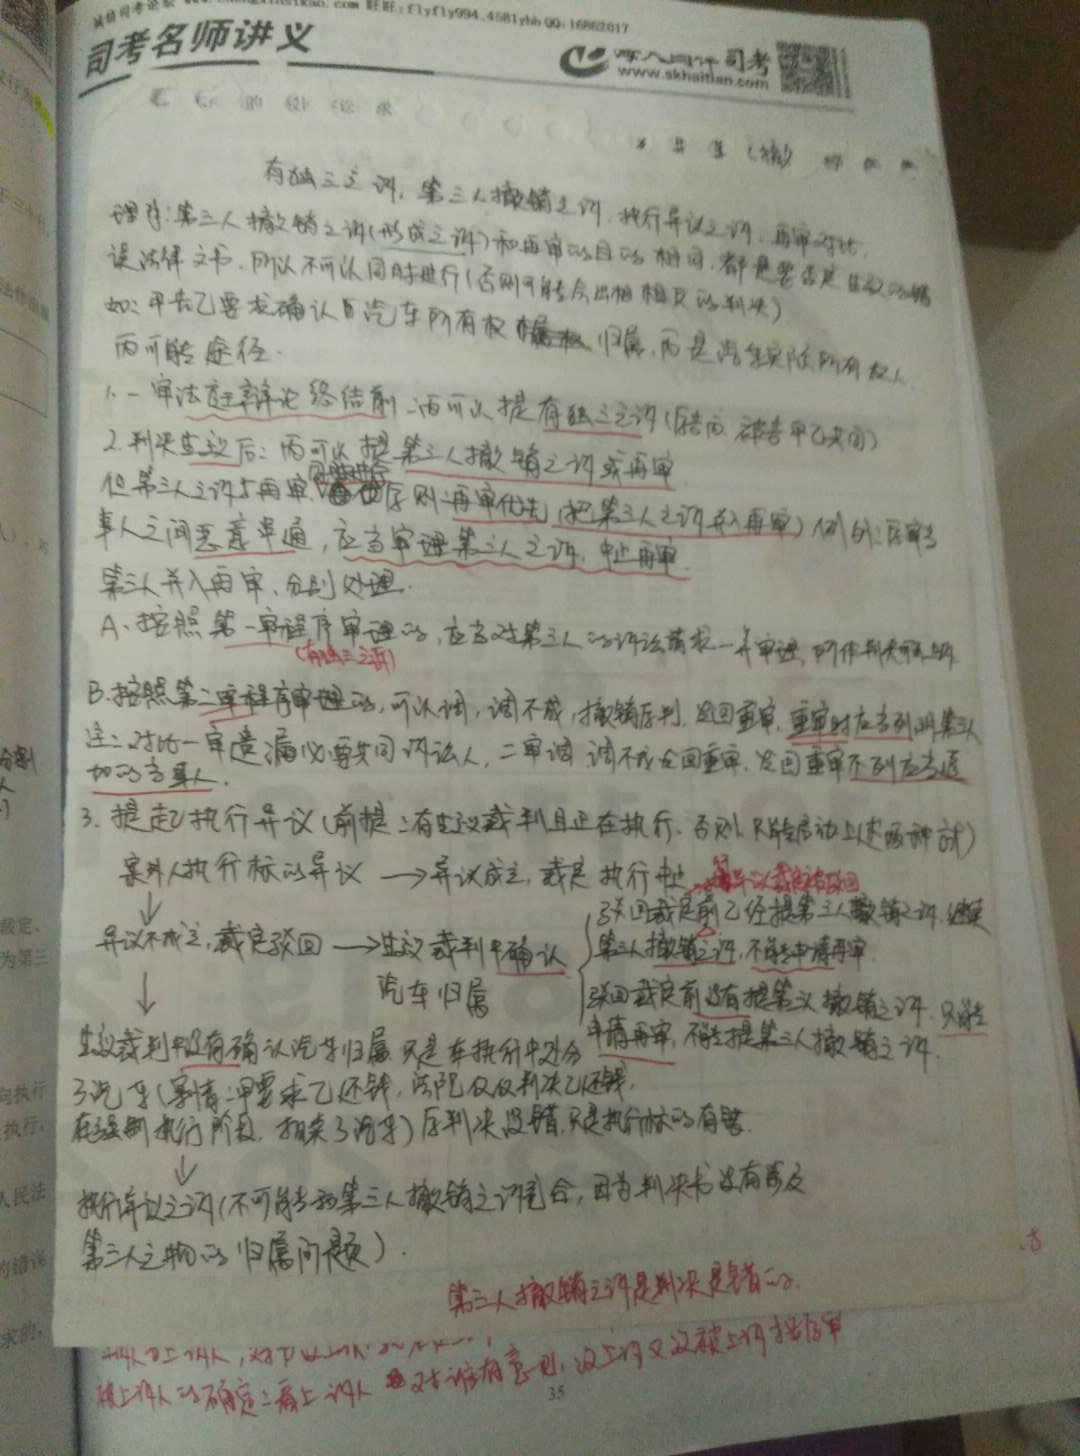 司考名师讲义
司考
www.skhaitian.com
有独三之诉，第三人撤销之诉，执行异议之诉，再审对比
理解：第三人撤销之诉(形成之诉)和再审的目的相同，都是要否定生效的错
误法律文书，所以不可以同时进行(否则可能会出相反的判决)
如：甲告乙要求确认自汽车所有权 归属，丙是汽车实际所有权人
丙可能途径.
1.一审法庭辩论终结前：丙可以提有独三之诉(原告丙，被告甲乙共同)
2.判决生效后：丙可以提第三人撤销之诉或再审
但第三人之诉与再审 原则：再审优先(把第三人之诉并入再审)例外：原审当
事人之间恶意串通，应当审理第三人之诉，中止再审.
第三人并入再审，分别处理.
A.按照第一审程序审理的，应当对第三人的诉讼请求一并审理，所作判决可上诉.
(有独三之诉)
B.按照第二审程序审理的，可以调，调不成，撤销原判，发回重审，重审时应当列明第三人
注：对比一审遗漏必要共同诉讼人，二审调，调不成发回重审，发回重审不列应当追
加的当事人.
3.提起执行异议(前提：有生效裁判且正在执行，否则只能启动上述两种诉)
案外人执行标的异议 → 异议成立，裁定执行中止
异议裁定被驳回
驳回裁定前已经提第三人撤销之诉，继续
异议不成立，裁定驳回 → 生效裁判中确认
第三人撤销之诉，不能申请再审.
汽车归属
驳回裁定前没有提第三人撤销之诉，只能
申请再审，不能提第三人撤销之诉.
生效裁判中没有确认汽车归属，只是在执行中处分
了汽车(案情：甲要求乙还钱，法院仅仅判决乙还钱，
在强制执行阶段，扣来了汽车)原判决没错，只是执行标的有错.
执行异议之诉(不可能和第三人撤销之诉竞合，因为判决书没有涉及
第三人之物的归属问题).
第三人撤销之诉是判决是错的.
被上诉人的确定：看上诉人 对谁有意见，没上诉又没被上诉按原审
35